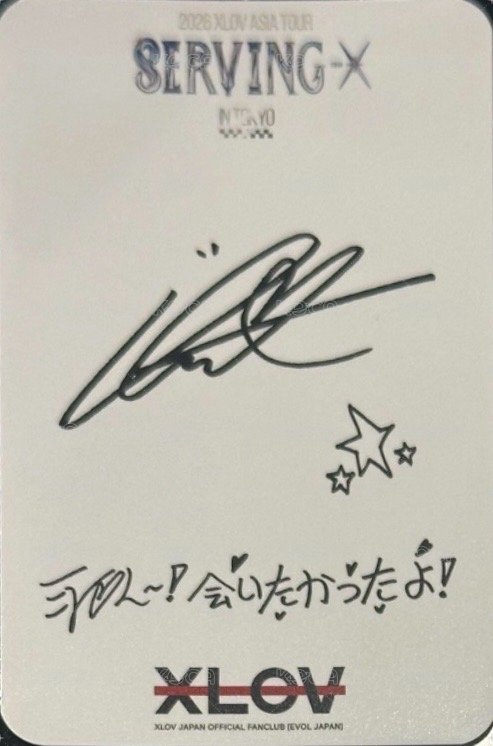 2026 XLOV ASIA TOUR
SERVING-X
IN TOKYO
会いたかったよ!
XLOV
XLOV JAPAN OFFICIAL FANCLUB [EVOL JAPAN]